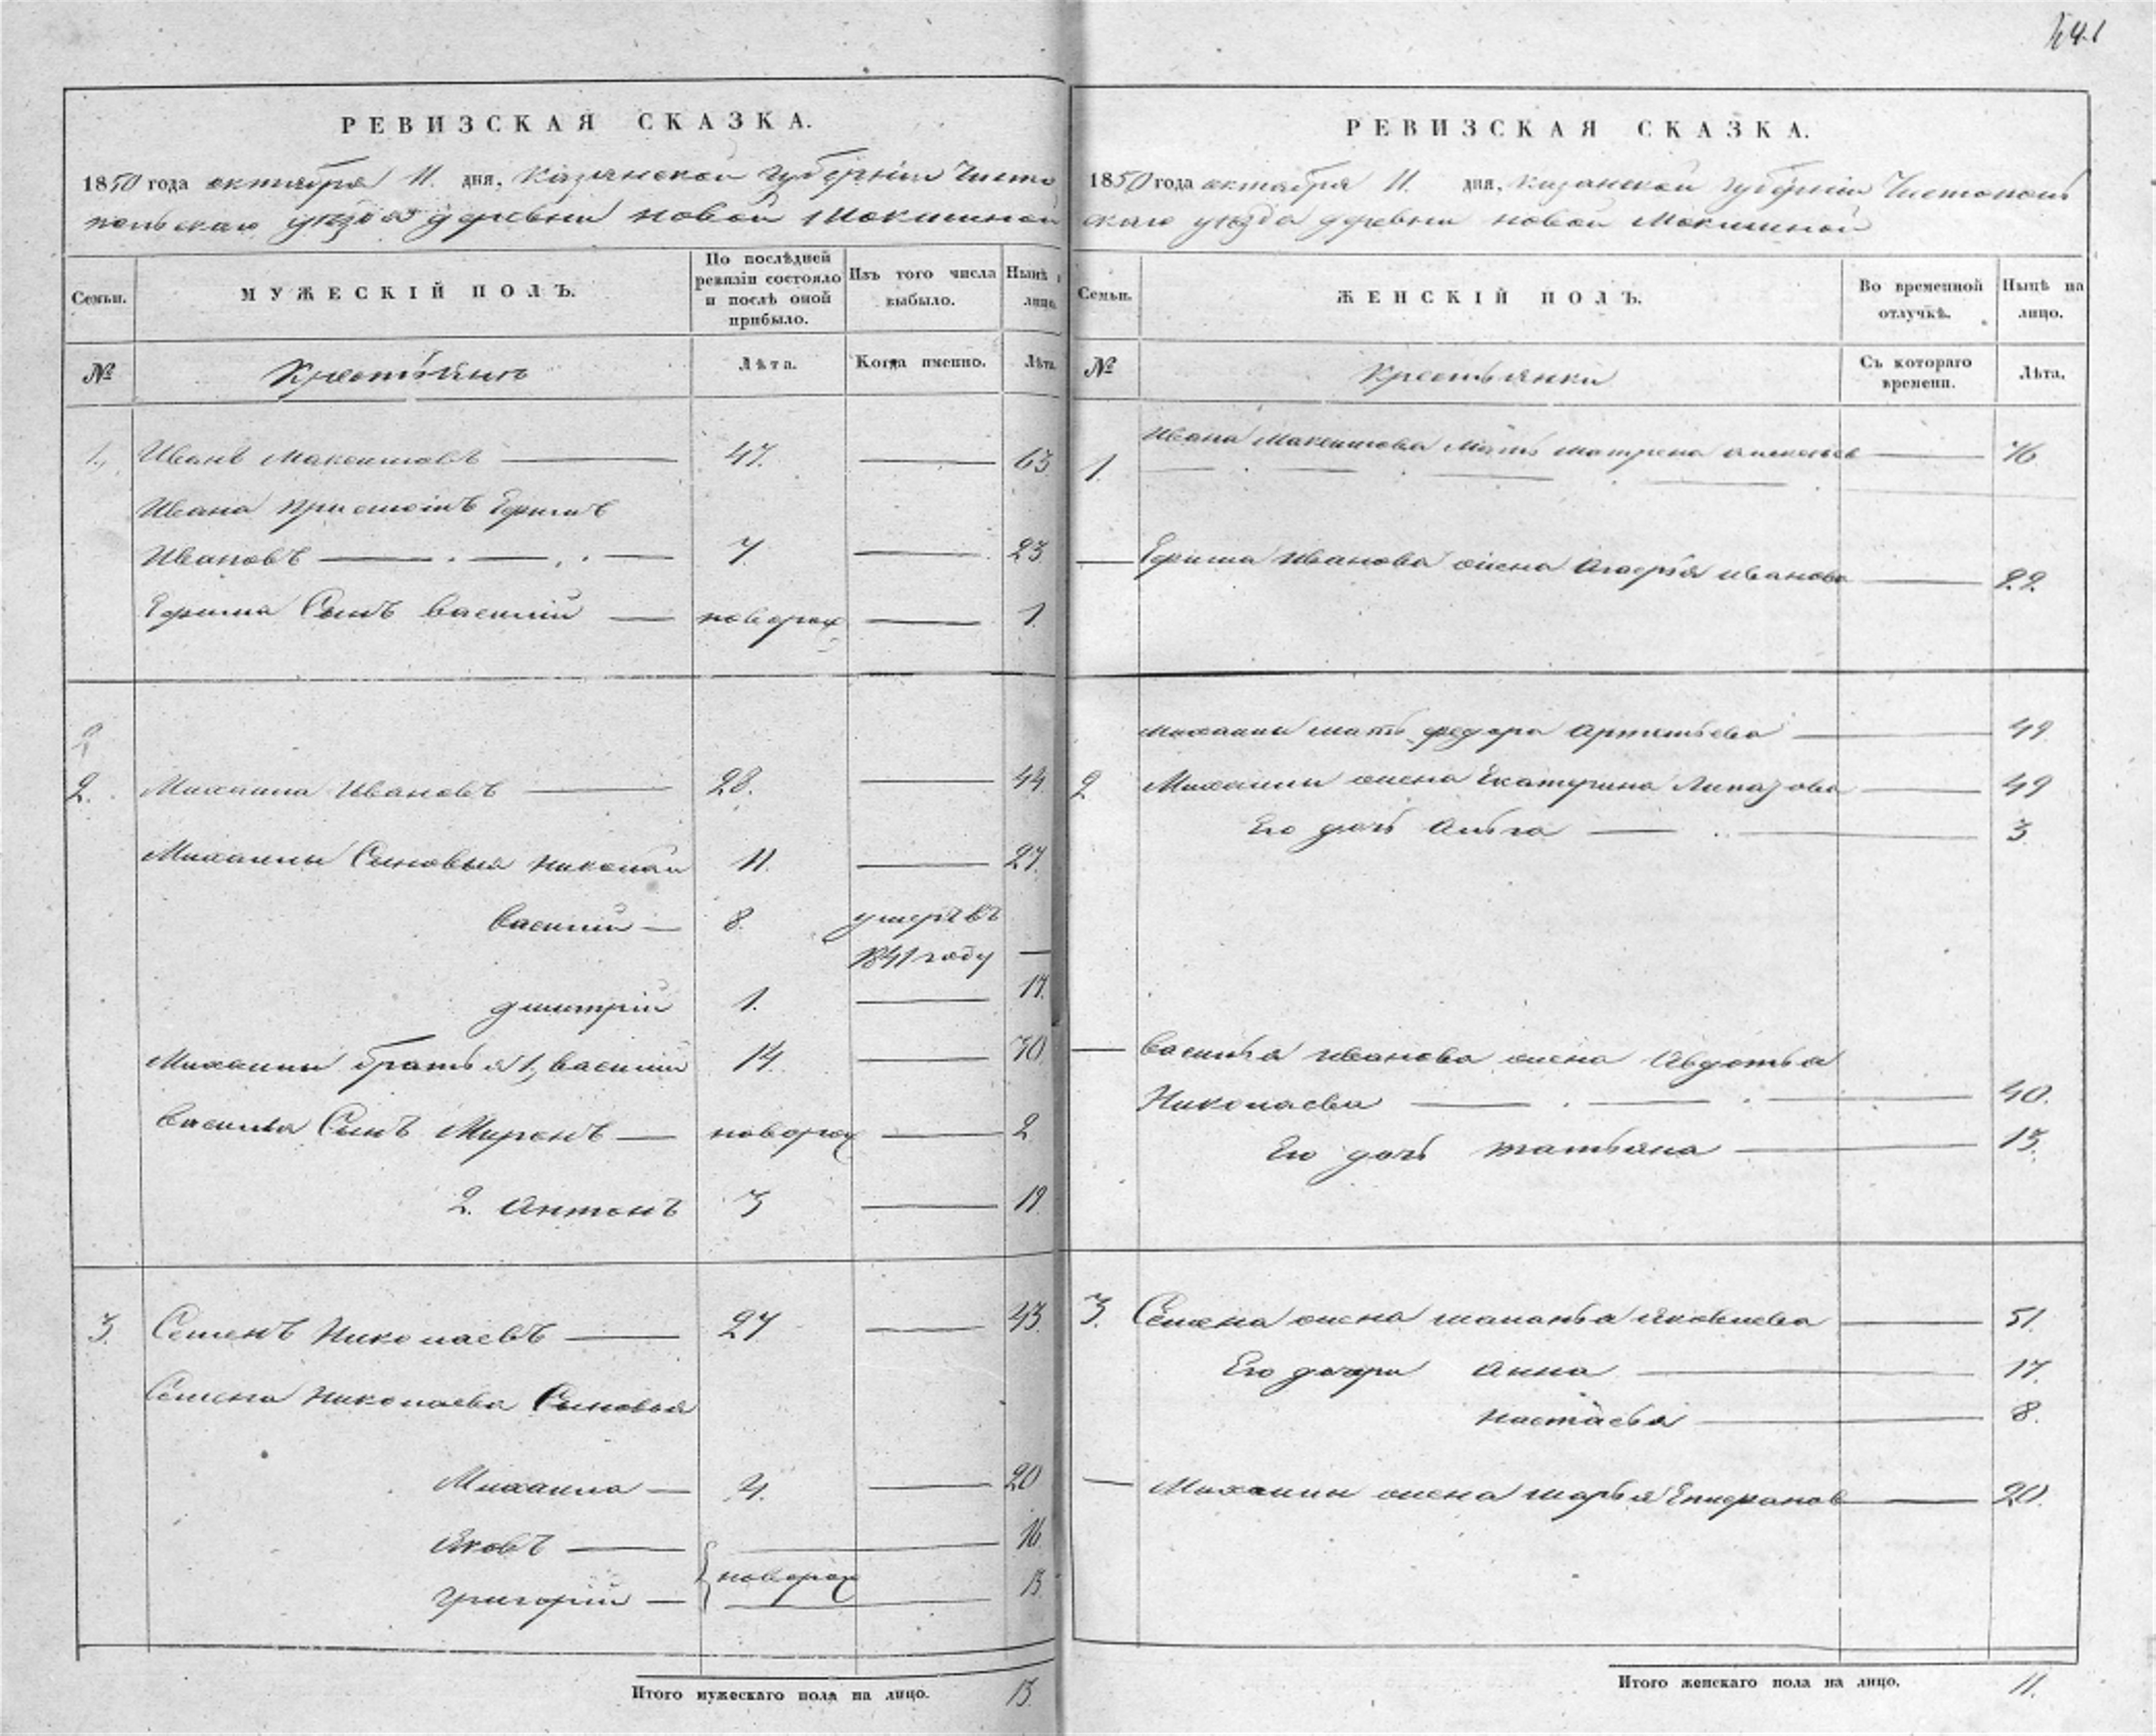 541
РЕВИЗСКАЯ СКАЗКА.
1850 года октября 11. дня, Казанской губернии Чисто
польскаго уезда деревни новой Мокшиной
Семьи.
МУЖЕСКІЙ ПОЛЪ.
По послѣдней ревизіи состояло и послѣ оной прибыло.
Изъ того числа выбыло.
Нынѣ лицо.
№
Крестьянъ
Лѣта.
Когда именно.
Лѣта.
1. Иванъ Максимовъ 47. 63
Ивана Ефимъ
Ивановъ 7. 23
Ефима Сынъ Василій новорож 1.
2
2. Михаила Ивановъ 28. 44
Михаилы Сыновья Николай 11. 27.
Василій 8. умеръ въ
1841 году
Дмитрій 1. 17.
Михаилы братья 1, Василій 14. 30
Василья Сынъ Миронъ новорож 2
2. Антонъ 3 19.
3. Семенъ Николаевъ 27 43.
Семена Николаева Сыновья
Михаила 4. 20
Яковъ 16
новорож
Григорій 13.
Итого мужескаго пола на лицо. 13
РЕВИЗСКАЯ СКАЗКА.
1850 года октября 11. дня, Казанской губерніи Чистополь
скаго уезда деревни новой Мокшиной
Семьи.
ЖЕНСКІЙ ПОЛЪ.
Во временной отлучкѣ.
Нынѣ на лицо.
№
Крестьянки
Съ котораго времени.
Лѣта.
1. Ивана Максимова Мать Матрена 76
Ефима Иванова жена Агафья Иванова 22.
Михаилы мать Федора Артемьева 49
2 Михаилы жена Екатерина 49
Его дочь 3.
Василья Иванова жена Авдотья
Николаева 40.
Его дочь Татьяна 13.
3. Семена жена Маланья Яковлева 51.
Его дочери Анна 17.
Настасья 8.
Михаилы жена Марья 20.
Итого женскаго пола на лицо. 11.